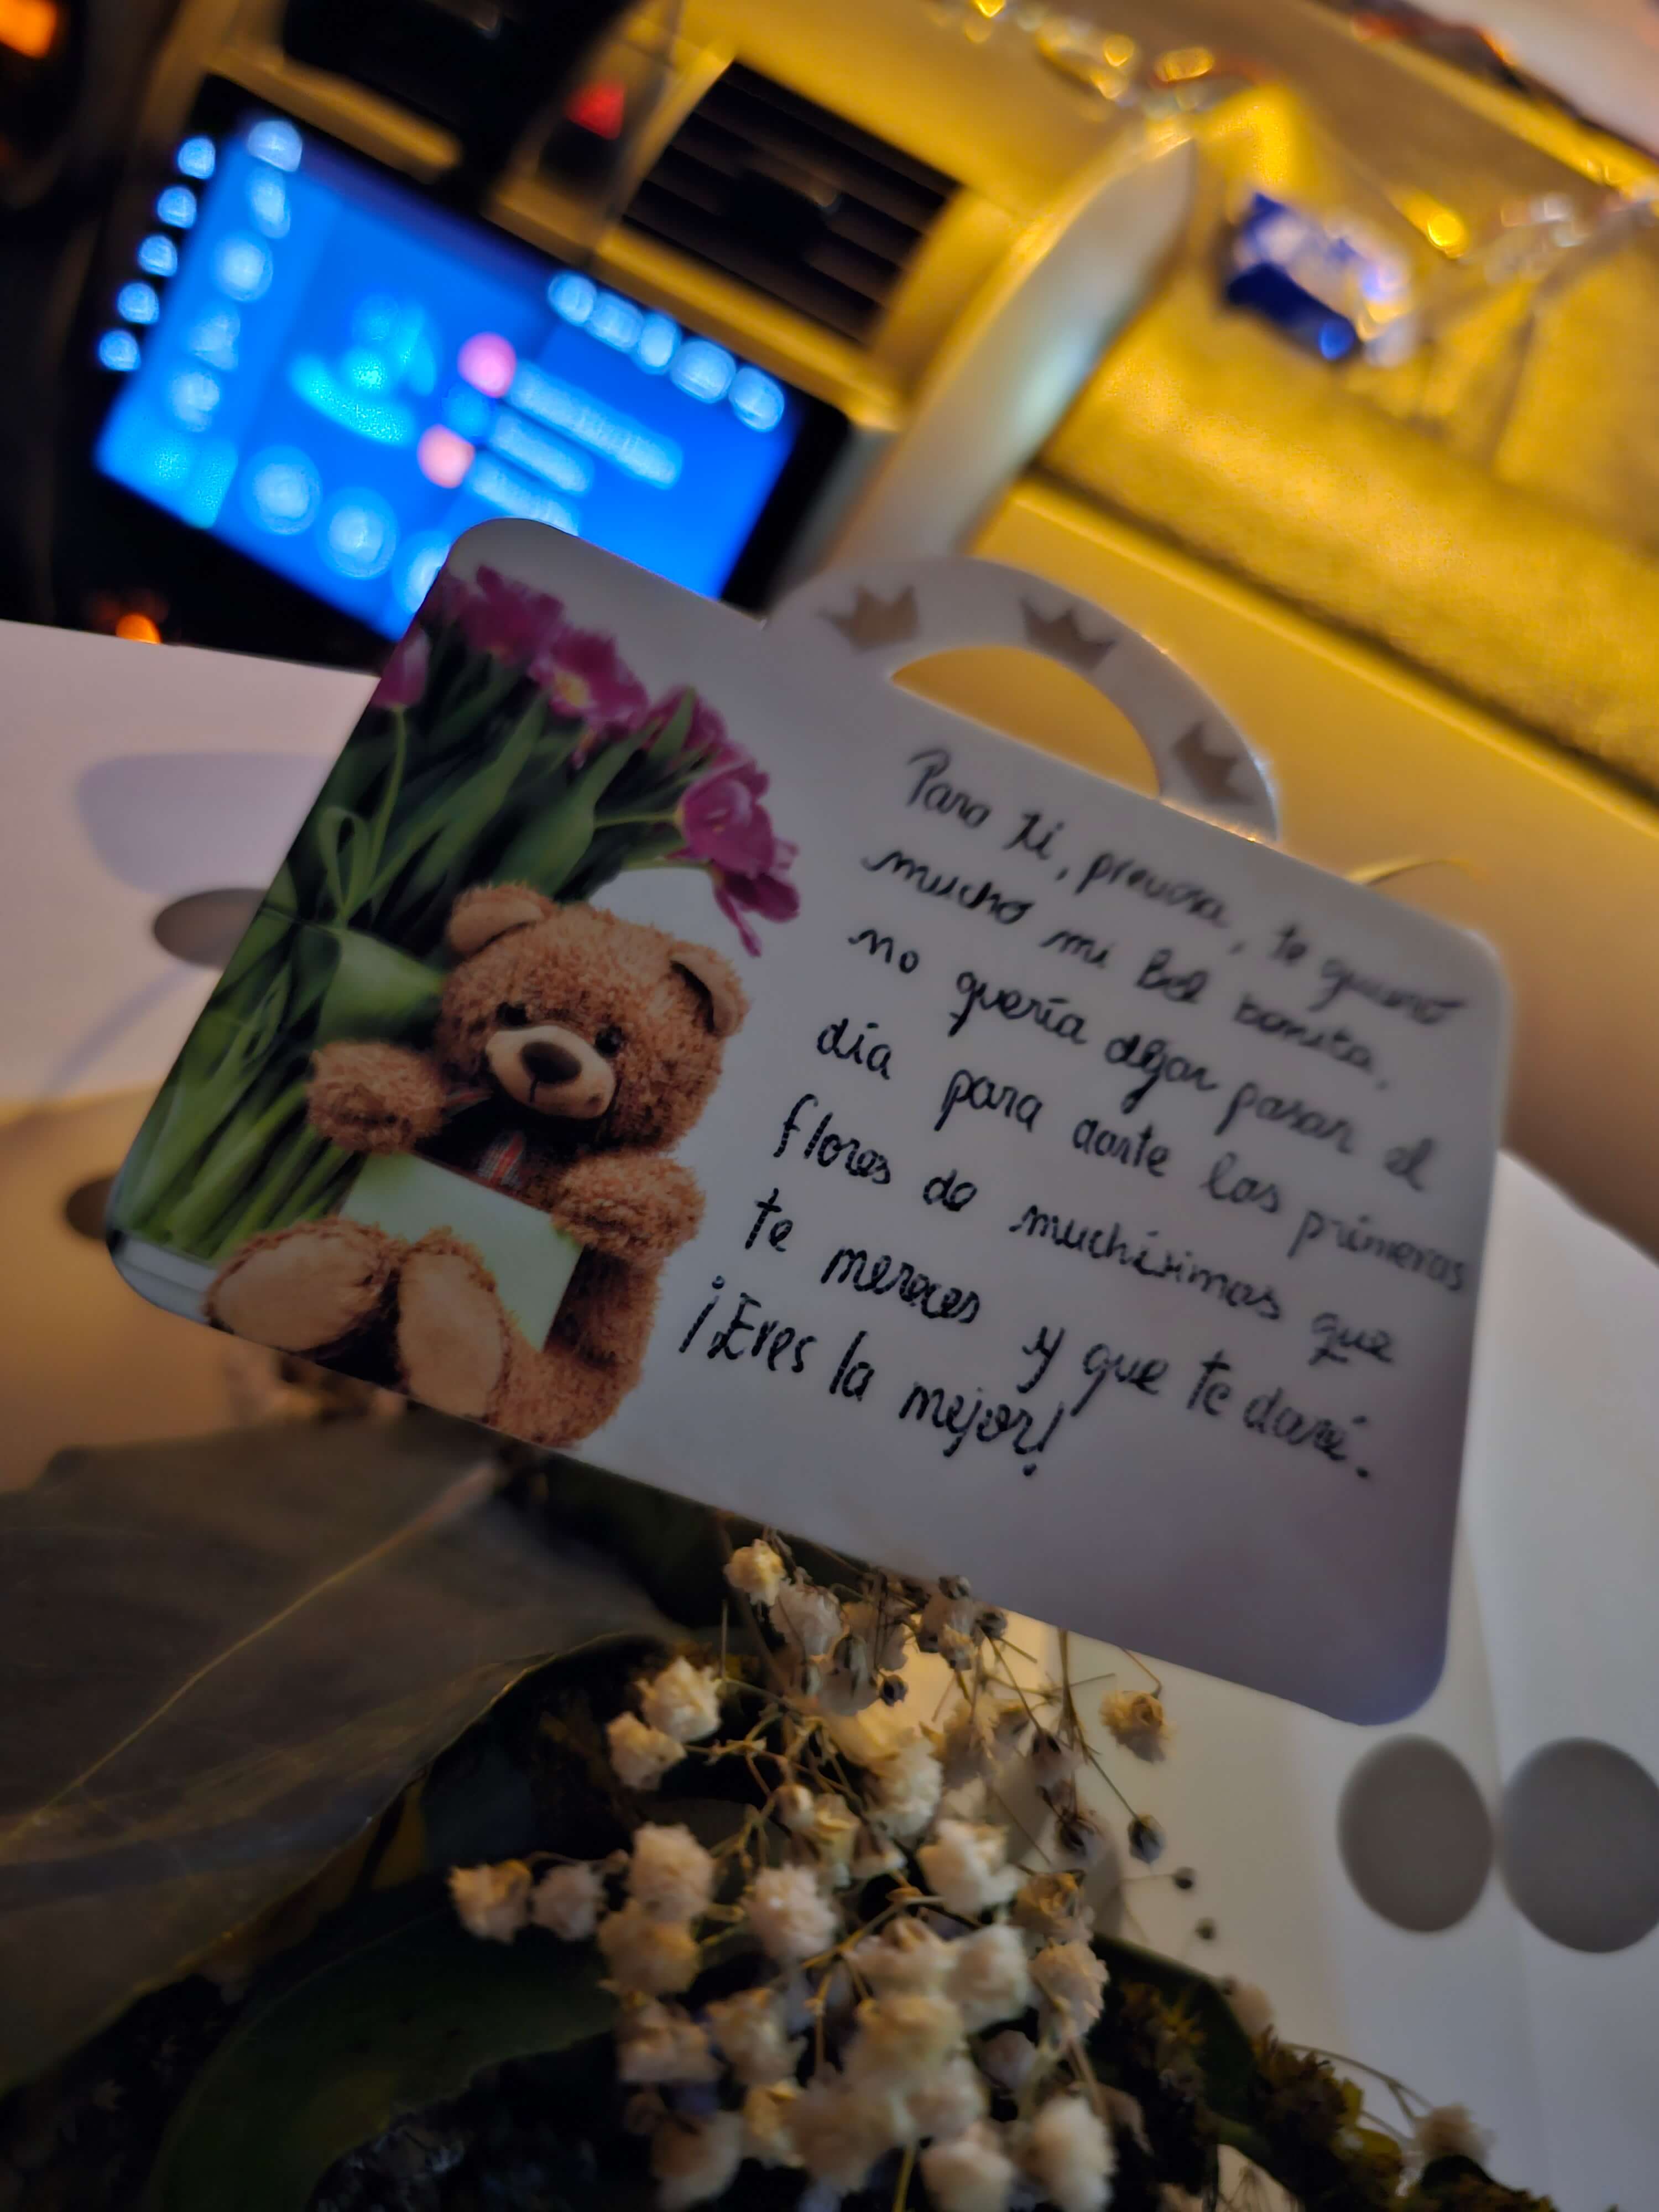 Para ti, preciosa, te quiero
mucho mi bel bonita,
no quería dejar pasar el
día para darte las primeras
flores de muchísimas que
te mereces y que te daré.
¡Eres la mejor!